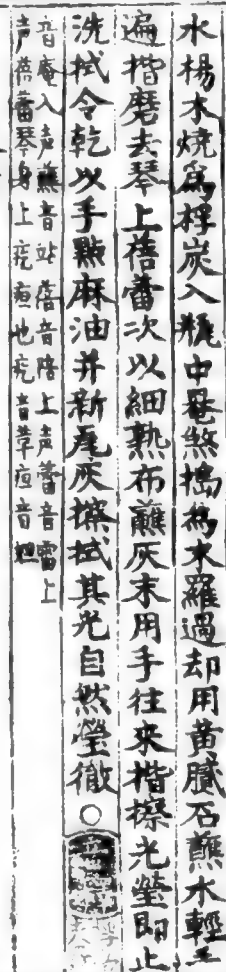 水楊木燒爲桴炭入瓶中罨煞搗為末羅過却用黄膩石蘸水輕々
遍揩磨去琴上蓓蕾次以細熟布蘸灰末用手往來揩擦光瑩即止
洗拭令乾以手點麻油并新瓦灰擦拭其光自然瑩徹○
音庵入声蘸音站蓓音陪上声蕾音雷上
声蓓蕾琴身上疙疸也疙音 疸音